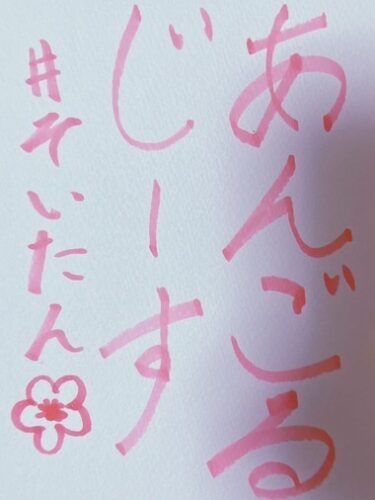 あんごる
じーす
#そいたん